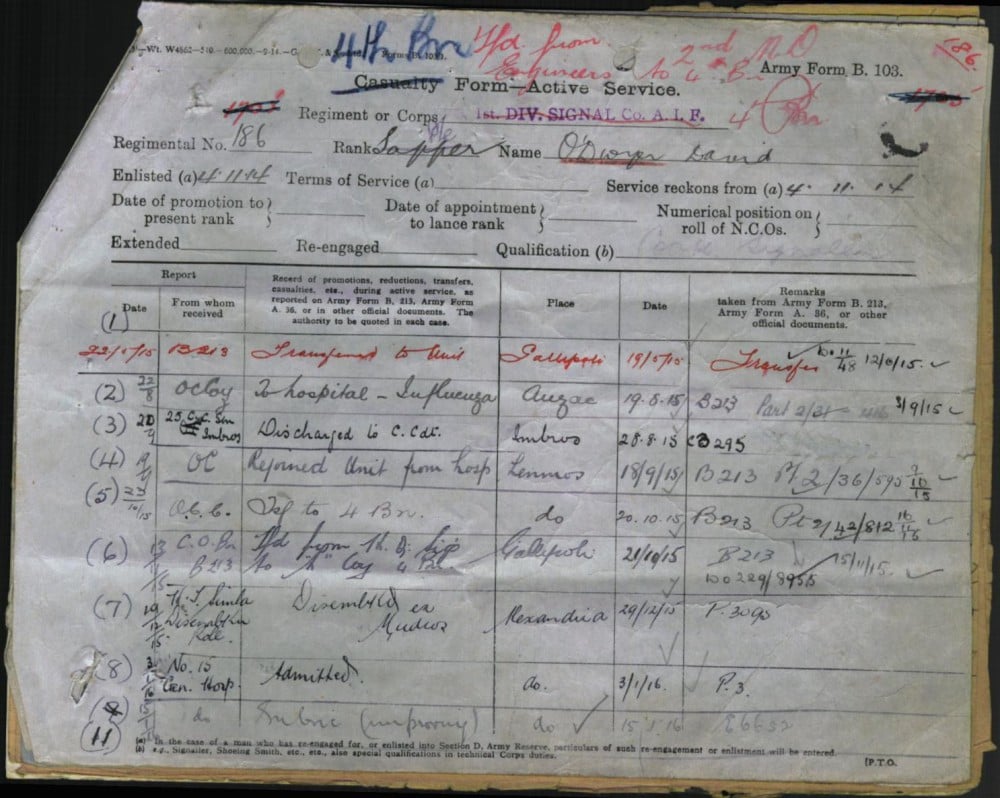 Wt. W4862—510.—600,000.—9-14.— Forms B. 103.
4th Bn Tfd. from 2nd M.D 186.
Engineers to 4 B.
Army Form B. 103.
Casualty Form—Active Service.
Regiment or Corps 1st. DIV. SIGNAL Co. A. I. F. 4 Bn
Regimental No. 186 Rank Sapper Name O'Dwyer David
Enlisted (a) 4.11.14 Terms of Service (a) Service reckons from (a) 4. 11. 14
Date of promotion to present rank Date of appointment to lance rank Numerical position on roll of N.C.Os.
Extended Re-engaged Qualification (b)
Report
Date
From whom received
Record of promotions, reductions, transfers, casualties, etc., during active service, as reported on Army Form B. 213, Army Form A. 36, or in other official documents. The authority to be quoted in each case.
Place
Date
Remarks taken from Army Form B. 213, Army Form A. 36, or other official documents.
(1) B213 Transferred to Unit Gallipoli 19/5/15 Transfer
(2) 22/8 OC Coy To hospital - Influenza Anzac 19.8.15 B213 3/9/15
(3) Imbros Discharged to C. Cdt. Imbros 28.8.15 B295
(4) OC Rejoined Unit from hosp Lemnos 18/9/15 B213 Pt 2/36/595
(5) Tsf to 4 Bn. do 20.10.15 B213 Pt 2/42/812
(6) C.O. Bn B213 Tfd from to "A" Coy 4 Bn. Gallipoli 21/10/15 B213 15/11/15.
(7) Simla Disembkn Disembkd ex Mudros Alexandria 29/12/15 P.3095
(8) No. 15 Gen. Hosp. Admitted. do. 3/1/16. P.3.
(11) do (improving) do 15.1.16 E6632
(a) In the case of a man who has re-engaged for, or enlisted into Section D, Army Reserve, particulars of such re-engagement or enlistment will be entered.
(b) e.g., Signaller, Shoeing Smith, etc., etc., also special qualifications in technical Corps duties.
[P.T.O.